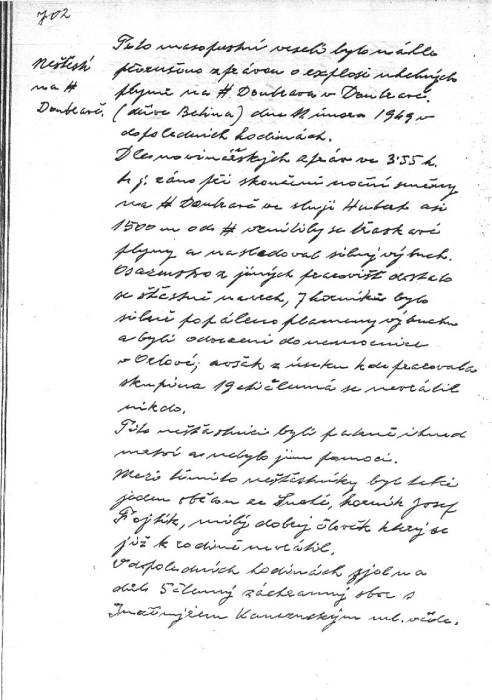 702
Neštěstí
na #
Doubravě.
Toto masopustní veselí bylo náhle
přerušeno zprávou o explosi uhelných
plynů na # Doubrava v Doubravě.
(dříve Betina) dne 11 února 1949 v
dopoledních hodinách.
Dle novinářských zpráv ve 3·55 h.
t. j. ráno při skončení noční směny
na # Doubravě ve sloji Hubert asi
1500 m od # vznítily se třaskavé
plyny a následoval silný výbuch.
Osazenstvo z jiných pracovišť dostalo
se šťastně na vrch, 7 horníků bylo
silně popáleno plameny výbuchu
a byli odvezeni do nemocnice
v Orlové, avšak z úseku kde pracovala
skupina 19ti členná se nevrátil
nikdo.
Tito nešťastníci byli patrně ihned
mrtví a nebylo jim pomoci.
Mezi těmito nešťastníky byl také
jeden občan ze Suché, horník Josef
Fojtík, milý dobrý člověk který se
již k rodině nevrátil.
V dopoledních hodinách sjel na
důl 5 členný záchranný sbor s
Inženýrem